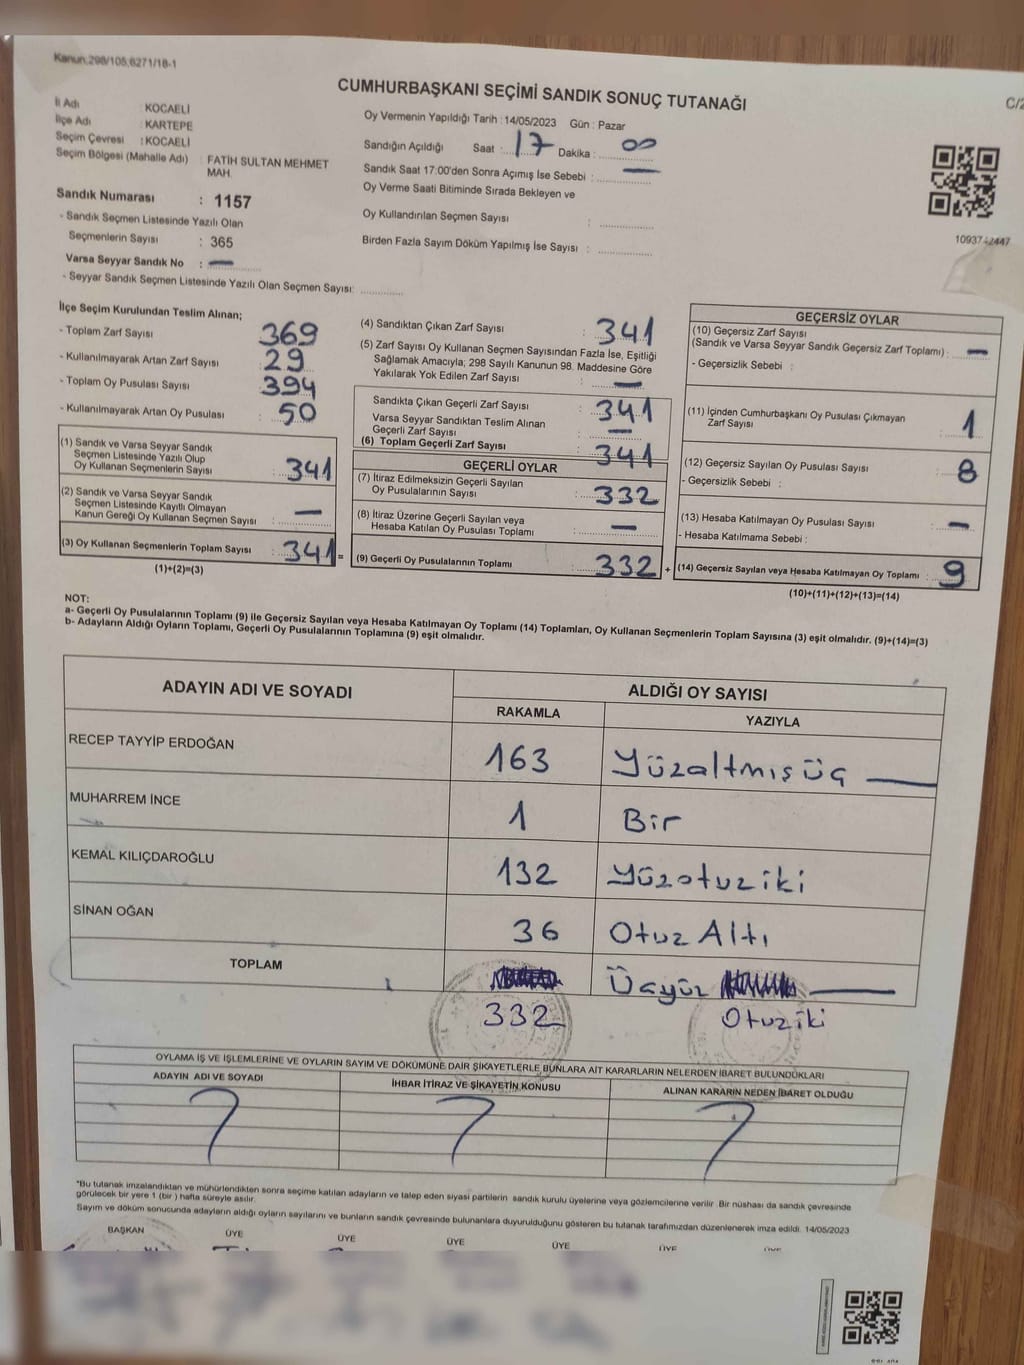 Kanun:298/105,6271/18-1
CUMHURBAŞKANI SEÇİMİ SANDIK SONUÇ TUTANAĞI
C/2
İl Adı : KOCAELİ
İlçe Adı : KARTEPE
Seçim Çevresi : KOCAELİ
Seçim Bölgesi (Mahalle Adı) : FATİH SULTAN MEHMET
MAH.
Sandık Numarası : 1157
- Sandık Seçmen Listesinde Yazılı Olan
Seçmenlerin Sayısı : 365
Varsa Seyyar Sandık No : —
- Seyyar Sandık Seçmen Listesinde Yazılı Olan Seçmen Sayısı:
Oy Vermenin Yapıldığı Tarih : 14/05/2023 Gün : Pazar
Sandığın Açıldığı Saat : 17 Dakika : 00
Sandık Saat 17:00'den Sonra Açımış İse Sebebi : —
Oy Verme Saati Bitiminde Sırada Bekleyen ve
Oy Kullandırılan Seçmen Sayısı :
Birden Fazla Sayım Döküm Yapılmış İse Sayısı :
1093742447
İlçe Seçim Kurulundan Teslim Alınan;
- Toplam Zarf Sayısı : 369
- Kullanılmayarak Artan Zarf Sayısı : 29
- Toplam Oy Pusulası Sayısı : 394
- Kullanılmayarak Artan Oy Pusulası : 50
(1) Sandık ve Varsa Seyyar Sandık
Seçmen Listesinde Yazılı Olup
Oy Kullanan Seçmenlerin Sayısı : 341
(2) Sandık ve Varsa Seyyar Sandık
Seçmen Listesinde Kayıtlı Olmayan
Kanun Gereği Oy Kullanan Seçmen Sayısı : —
(3) Oy Kullanan Seçmenlerin Toplam Sayısı : 341 =
(1)+(2)=(3)
(4) Sandıktan Çıkan Zarf Sayısı : 341
(5) Zarf Sayısı Oy Kullanan Seçmen Sayısından Fazla İse, Eşitliği
Sağlamak Amacıyla; 298 Sayılı Kanunun 98. Maddesine Göre
Yakılarak Yok Edilen Zarf Sayısı : —
Sandıkta Çıkan Geçerli Zarf Sayısı : 341
Varsa Seyyar Sandıktan Teslim Alınan
Geçerli Zarf Sayısı : —
(6) Toplam Geçerli Zarf Sayısı : 341
GEÇERLİ OYLAR
(7) İtiraz Edilmeksizin Geçerli Sayılan
Oy Pusulalarının Sayısı : 332
(8) İtiraz Üzerine Geçerli Sayılan veya
Hesaba Katılan Oy Pusulası Toplamı : —
(9) Geçerli Oy Pusulalarının Toplamı : 332 +
GEÇERSİZ OYLAR
(10) Geçersiz Zarf Sayısı
(Sandık ve Varsa Seyyar Sandık Geçersiz Zarf Toplamı) : —
- Geçersizlik Sebebi :
(11) İçinden Cumhurbaşkanı Oy Pusulası Çıkmayan
Zarf Sayısı : 1
(12) Geçersiz Sayılan Oy Pusulası Sayısı : 8
- Geçersizlik Sebebi :
(13) Hesaba Katılmayan Oy Pusulası Sayısı : —
- Hesaba Katılmama Sebebi :
(14) Geçersiz Sayılan veya Hesaba Katılmayan Oy Toplamı : 9
(10)+(11)+(12)+(13)=(14)
NOT:
a- Geçerli Oy Pusulalarının Toplamı (9) ile Geçersiz Sayılan veya Hesaba Katılmayan Oy Toplamı (14) Toplamları, Oy Kullanan Seçmenlerin Toplam Sayısına (3) eşit olmalıdır. (9)+(14)=(3)
b- Adayların Aldığı Oyların Toplamı, Geçerli Oy Pusulalarının Toplamına (9) eşit olmalıdır.
ADAYIN ADI VE SOYADI
ALDIĞI OY SAYISI
RAKAMLA YAZIYLA
RECEP TAYYİP ERDOĞAN 163 Yüzaltmışüç
MUHARREM İNCE 1 Bir
KEMAL KILIÇDAROĞLU 132 Yüzotuziki
SİNAN OĞAN 36 Otuz Altı
TOPLAM Üçyüz
332 Otuziki
OYLAMA İŞ VE İŞLEMLERİNE VE OYLARIN SAYIM VE DÖKÜMÜNE DAİR ŞİKAYETLERLE BUNLARA AİT KARARLARIN NELERDEN İBARET BULUNDUKLARI
ADAYIN ADI VE SOYADI İHBAR İTİRAZ VE ŞİKAYETİN KONUSU ALINAN KARARIN NEDEN İBARET OLDUĞU
*Bu tutanak imzalandıktan ve mühürlendikten sonra seçime katılan adayların ve talep eden siyasi partilerin sandık kurulu üyelerine veya gözlemcilerine verilir. Bir nüshası da sandık çevresinde
görülecek bir yere 1 (bir ) hafta süreyle asılır.
Sayım ve döküm sonucunda adayların aldığı oyların sayılarını ve bunların sandık çevresinde bulunanlara duyurulduğunu gösteren bu tutanak tarafımızdan düzenlenerek imza edildi. 14/05/2023
BAŞKAN ÜYE ÜYE ÜYE ÜYE ÜYE ÜYE